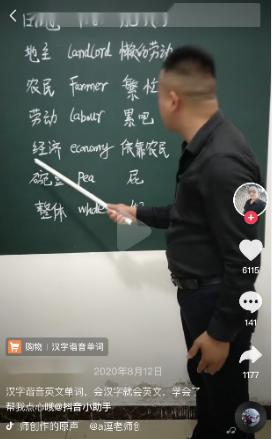 地主 Landlord 懒的劳动
农民 Farmer 繁忙
劳动 Labour 累吧
经济 economy 依靠农民
豌豆 Pea 屁
整体 whole
6115
141
1177
购物 | 汉字谐音单词
2020年8月12日
汉字谐音英文单词,会汉字就会英文,学会了
帮我点心哦@抖音小助手
师创作的原声 @a逗老师创